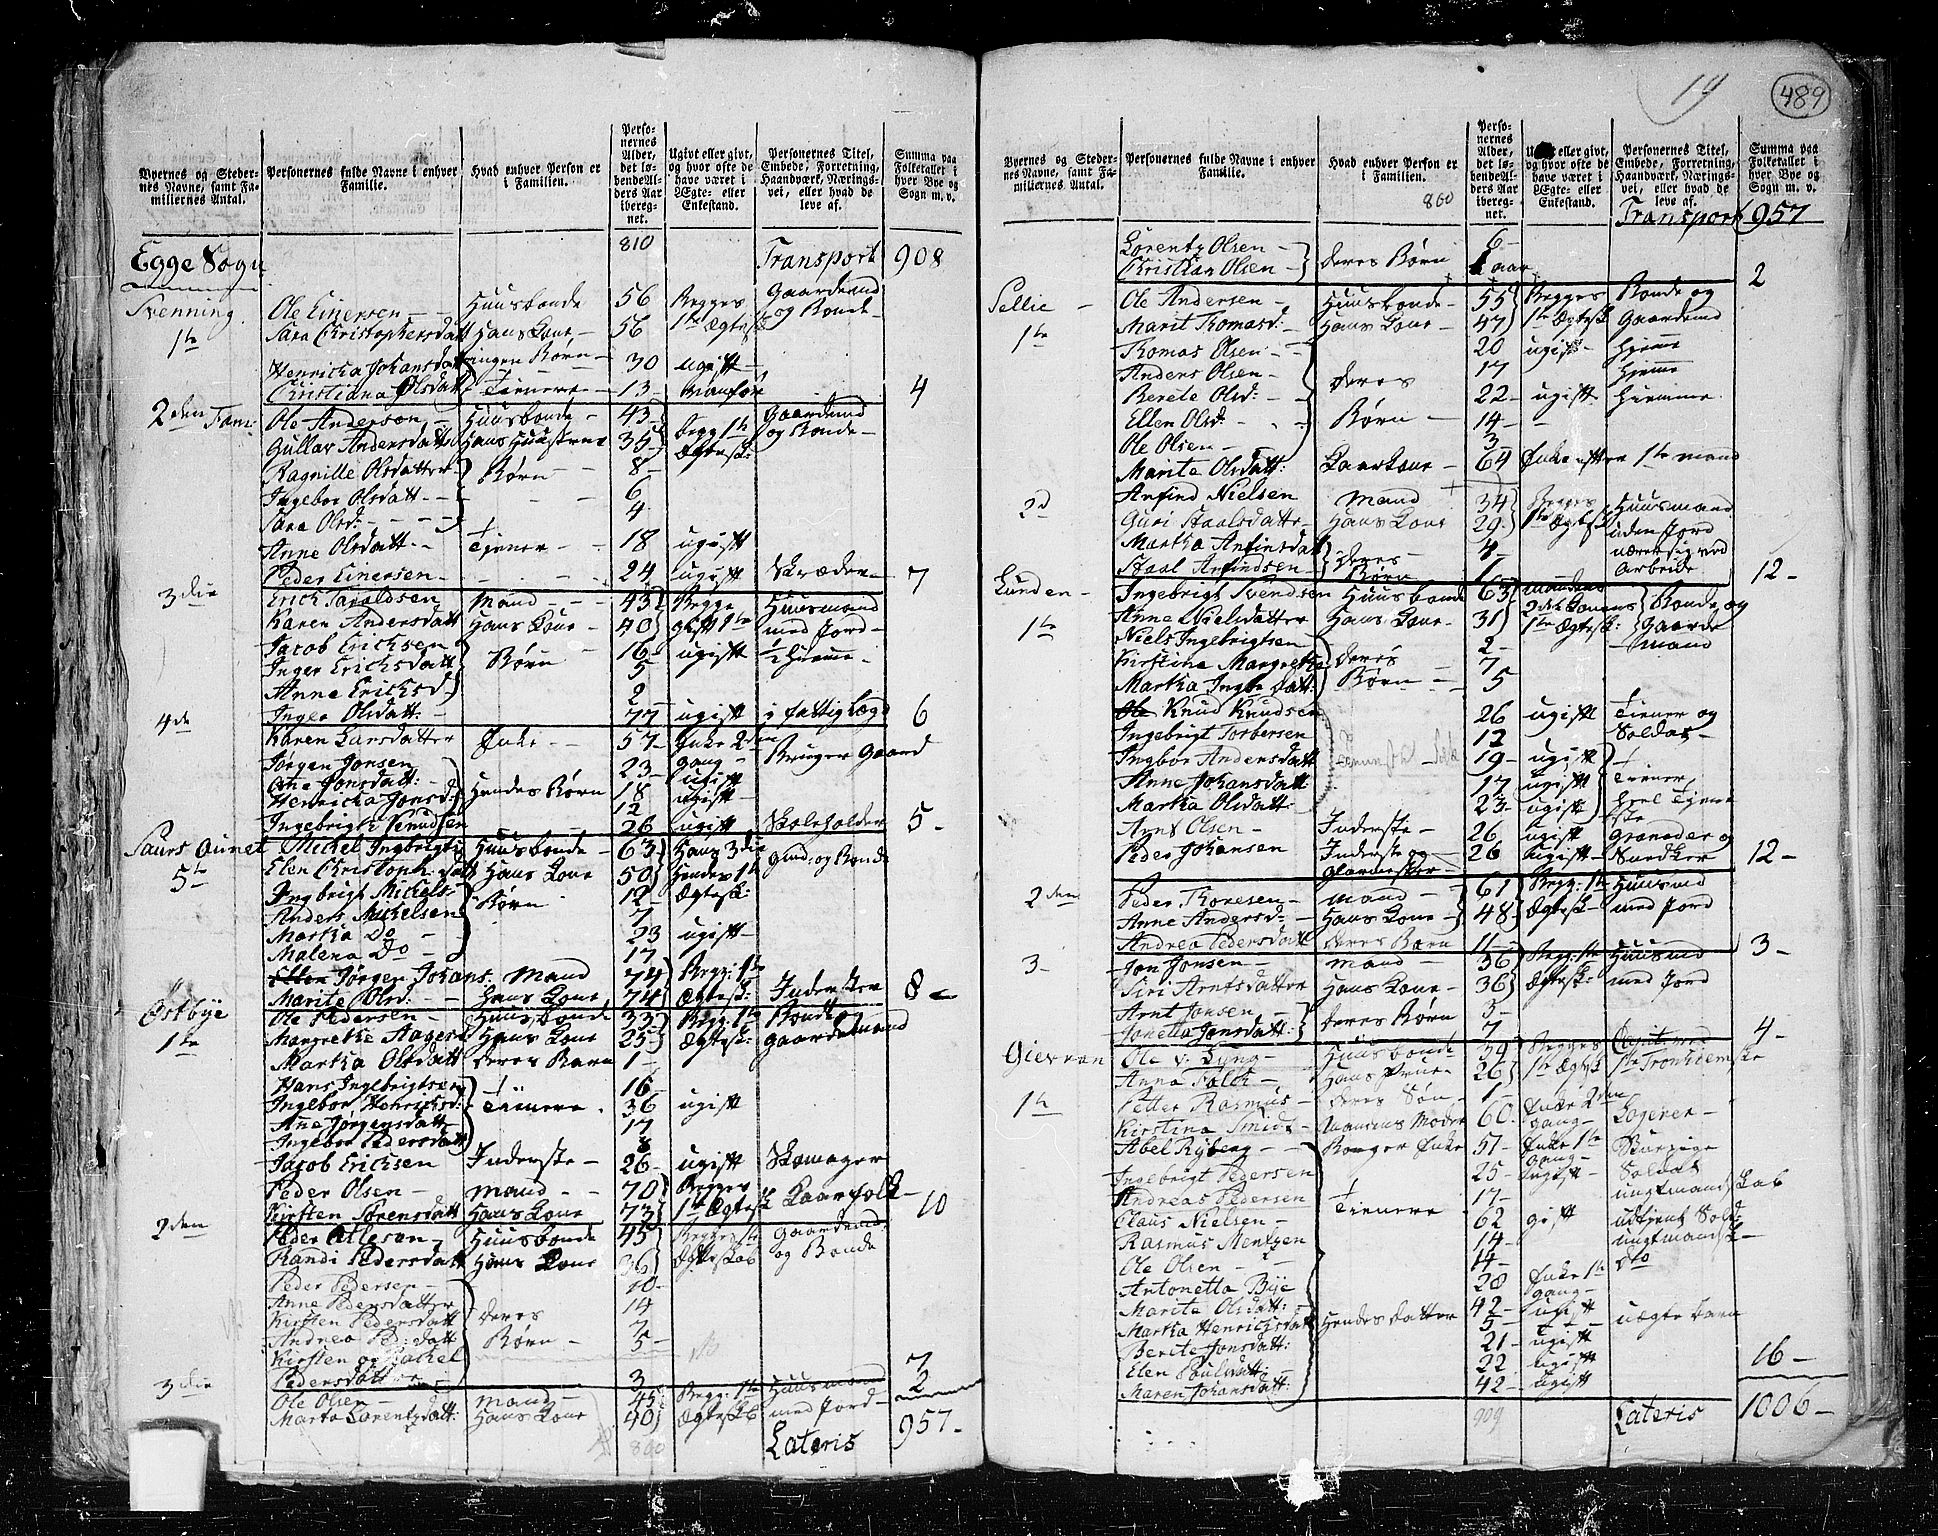 19
489
Byernes og Stedernes Navne, samt Familiernes Antal.
Personernes fulde Navne i enhver Familie.
Hvad enhver Person er i Familien.
Personernes Alder, det løbende Alders Aar iberegnet.
Ugivt eller givt, og hvor ofte de have været i Ægte- eller Enkestand.
Personernes Titel, Embede, Forretning, Haandværk, Næringsvei, eller hvad de leve af.
Summa paa Folketallet i hver Bye og Sogn m. v.
810
Egge Sogn Transport 908
Svenning Ole Einersen Huusbonde 56 Begges Gaardmd
1te Sara Christophersdatt Hans Kone 56 1te Ægtesk og Bonde
ingen Børn
Henricka Johansdatt 30 ugift
Christiana Olsdatt Tienere 13 4
2den Fam: Ole Anderson Huusbonde 43 begg 1te Gaardmd
Gullav Andersdatt Hans Huustrue 35 Ægtesk: og Bonde
Ragnille Olsdatter Børn 8
Ingebor Olsdatt 6
Sara Olsd: 4
Anne Olsdatt Tiener 18 ugift
Peder Einersen 24 ugift Skræder 7
3die Erich Taraldsen Mand 43 Begge Huusmand
Karen Andersdatt Hans Kone 40 gift 1te med Jord
Jacob Erichsen 16 ugift hiemme
Inger Erichsdatt Børn 5
Anne Ericksd 2
Inger Olsdatt: 77 ugift i fattig lægd 6
4de Karen Larsdatter Enke 57 Enke 2den Bruger Gaard
Jørgen Jonsen 23 gang
Ane Jonsdatt: Hendes Børn 18 ugift
Henricka Jonsd: 12 ugift
Ingebrigt Knudsen 26 ugift Skoleholder 5
Saurs Aunet Mickel Ingbrigts Huusbonde 63 Hans 3die
5te Elen Christoph: datt Hans Kone 50 Hendes 1te Gmd: og Bonde
Ingbrigt Mickels Børn 12 Ægtesk:
Anders Mickelsen 7
Martha Do 23 ugift
Malena Do 17
Jørgen Johans: Mand 74 Begg: 1te
Marite Olsd: Hans Kone 74 Ægtesk: Inderster 8
Østbye Ole Pedersen Huusbonde 33 Begg: 1te Bonde
1te Margrethe Aagers Hans Kone 25 Ægtesk: gaardmand
Martha Olsdatt deres Barn 1
Hans Ingebrigtsen 16
Ingebor Henrichsd: Tienere 36 ugift
Ane Jørgensdatt 17
Ingebor Pedersdatt 8
Jacob Erichsen Inderste 26 ugift Skomager
Peder Olsen Mand 70 Begges
Kirsten Sørensdatt Hans Kone 73 1te Ægtesk Kaarfolk 10
2den Peder Atlesen Huusbonde 45 Begges 1te Gaardmd:
Randi Pedersdatt Hans Kone 36 Ægteskab og Bonde
Peder Pedersen 10
Anne Pedersdatter 14
Kirsten Pedersdatt deres 7
Andrea Ped: datt Børn 5
Kirsten og Rachel
Pedersdatt 3 7
3die Ole Olsen Mand 45 Begg: 1te Huusmand 2
Marta Lorentzdatt: Hans Kone 40 Ægteskb med Jord
860 Lateris 957
Byernes og Stedernes Navne, samt Familiernes Antal.
Personernes fulde Navne i enhver Familie.
Hvad enhver Person er i Familien.
Personernes Alder, det løbende Alders Aar iberegnet.
Ugivt eller givt, og hvor ofte de have været i Ægte- eller Enkestand.
Personernes Titel, Embede, Forretning, Haandværk, Næringsvei, eller hvad de leve af.
Summa paa Folketallet i hver Bye og Sogn m. v.
860
Transport 957
Lorentz Olsen 6
Christian Olsen deres Børn 1 aar 2
Sellie Ole Andersen Huusbonde 55 Begges Bonde og
1te Marit Thomasd: Hans Kone 47 1te Ægtesk Gaardmd
Thomas Olsen 20 ugift hjeme
Anders Olsen 17 Hjeme
Berete Olsd: deres 22 ugift hiemme
Ellen Olsd. Børn 14
Ole Olsen 3
Marite Olsdatt: Kaarkone 64 Enke efter 1te mand
2d Arfind Nielsen Mand 34 Begges Huusmand
Guri Staalsdatter Hans Kone 29 1te Ægtesk uden Jord
Martha Arfinsdatt deres 4 nærer sig ved
Staal Arfindsen Børn 1 Arbeide 12
Lunden Ingebrigt Svendsen Huusbonde 63 mandens
1te Anne Nielsdatter Hans Kone 31 2det Konens Bonde og
Niels Ingebrigtsen 2 1te Ægtesk: Gaardemand
Kirstina Margretha deres 7
Martha Ingb datt: Børn 5
Knud Knudsen 26 ugift Tiener og
Ingebrigt Torbersen 12 Soldat
Ingbor Andersdatt 19 ugift
Anne Johansdatt 17 ugift Tiener
Martha Olsdatt 23 ugift
Arnt Olsen Inderste 26 ugift Granader og
Peder Johansen Inderste og 26 ugift
Glarmester 12
2den Peder Thoresen mand 61 Begg: 1te Huusmd
Anne Andersd: Hans Kone 48 Ægtesk: med Jord
Andrea Pedersdatt deres Barn 11 3
3 Jon Jonsen mand 36 Begg: 1te Huusmd
Siri Arntsdatter Hans Kone 36 Ægtesk: med Jord
Arnt Jonsen 3
Jonetta Jonsdatt: deres Børn 7 4
Gievran Ole v. Lyng Huusbonde 34 Begges
1te Anna Falck Hans Frue 26 1te Ægtsk 1te Tronhiemske
Petter Rasmus deres Søn 1
Kirstina Smidt Mandens Moder 60 Enke 2den Logerer
gang
Abel Ryberg Borger Enke 51 Enke 1te
gang
Ingebrigt Pedersen 25 ugift Soldat
Andreas Pedersen 17 ungtmandskab
Claus Nielsen Tienere 62 gift udtient Sold
Rasmus Mentzen 14 ungtmandsk
Ole Olsen 14 dto
Antonetta Bye 28 Enke 1te
gang
Marite Olsdatt: 42 ugift
Martha Henrichsdatt Hendes datter 5 uægte barn
Berite Jonsdatt: 21 ugift
Elen Paulsdatt 22 ugift 16
Maren Johansdatt: 42 ugift
909 Lateris 1006